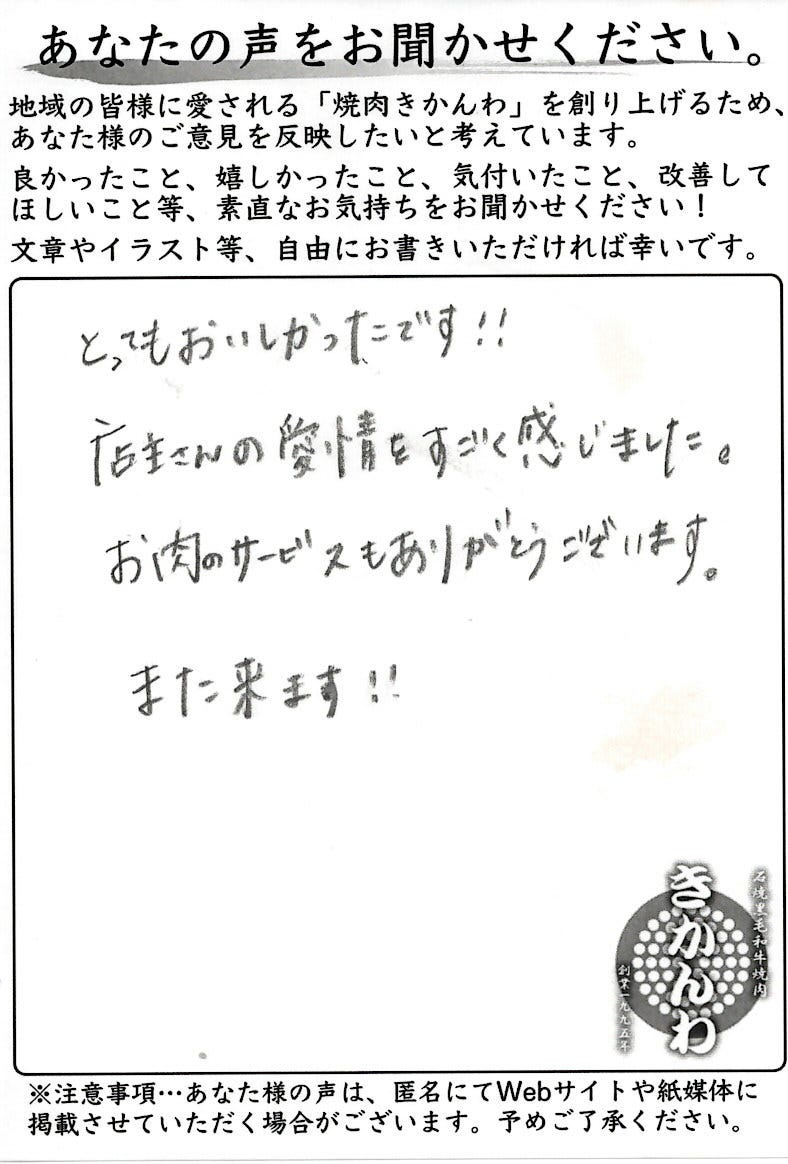 あなたの声をお聞かせください。
地域の皆様に愛される「焼肉きかんわ」を創り上げるため、
あなた様のご意見を反映したいと考えています。
良かったこと、嬉しかったこと、気付いたこと、改善して
ほしいこと等、素直なお気持ちをお聞かせください！
文章やイラスト等、自由にお書きいただければ幸いです。
とってもおいしかったです!!
店主さんの愛情をすごく感じました。
お肉のサービスもありがとうございます。
また来ます!!
石焼黒毛和牛焼肉
きかんわ
創業一九九五年
※注意事項…あなた様の声は、匿名にてWebサイトや紙媒体に
掲載させていただく場合がございます。予めご了承ください。